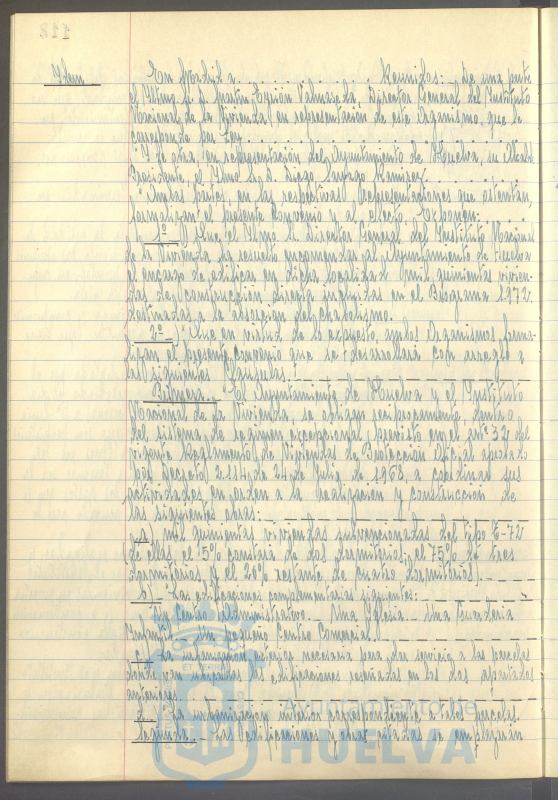 112
Idem.- En Madrid a . . . . . . . . Reunidos: - De una parte
el Iltmo. S. D. Martín Eyries Valmaseda, Director General del Instituto
Nacional de la Vivienda, en representación de este Organismo, que le
corresponde por Ley. . . . . . . . . .
Y de otra, en representación del Ayuntamiento de Huelva, su Alcalde
Presidente, el Iltmo. S. D. Diego Sayago Ramírez. . . . . .
Ambas partes, en las respectivas representaciones que ostentan,
formalizan el presente convenio y al efecto. Exponen: . . . .
1º.) Que el Iltmo. Sr. Director General del Instituto Nacional
de la Vivienda ha resuelto encomendar al Ayuntamiento de Huelva
el encargo de edificar en dicha localidad mil quinientas vivien-
das de construcción directa incluidas en el Programa 1972.
destinadas a la absorción del chabolismo.
2º.) Que en virtud de lo expuesto, ambos Organismos forma-
lizan el presente convenio que se desarrollará con arreglo a
las siguientes Clausulas
Primera.- El Ayuntamiento de Huelva y el Instituto
Nacional de la Vivienda, se obligan recíprocamente, dentro
del sistema de régimen excepcional previsto en el artº 32 del
vigente Reglamento de Viviendas de Protección Oficial aprobado
por Decreto 2.114 de 24 de Julio de 1968, a coordinar sus
actividades, en orden a la realización y construcción de
las siguientes obras:
a) mil quinientas viviendas subvencionadas del tipo E-72
de ellas el 5% constará de dos dormitorios; el 75% de tres
dormitorios y el 20% restante de cuatro dormitorios).
b).- Las edificaciones complementarias siguientes:
Un Centro Administrativo - Una Iglesia - Una Guardería
Infantil - Un pequeño Centro Comercial.
c) La urbanización necesaria para dar servicio a las parcelas
donde van ubicadas las edificaciones reseñadas en los dos apartados
anteriores.
La urbanización interior correspondiente a las parcelas.
Segunda.- Las edificaciones y obras citadas se emplazarán
Ayuntamiento de
HUELVA